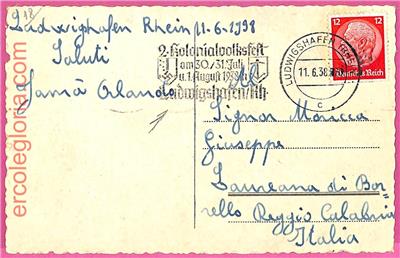 918
Ludwighafen Rhein 11-6-1938
Saluti
Jannò Orlando
2. Kolonialvolksfest
am 30./31. Juli
u. 1. August 1938 in
Ludwigshafen/Rh
LUDWIGSHAFEN (RHEIN)
11.6.38
c
12 12
Deutsches Reich
Al
Signor Monicca
Giuseppe
Laureana di Bor-
rello Reggio Calabria
Italia
ercolegloria.com